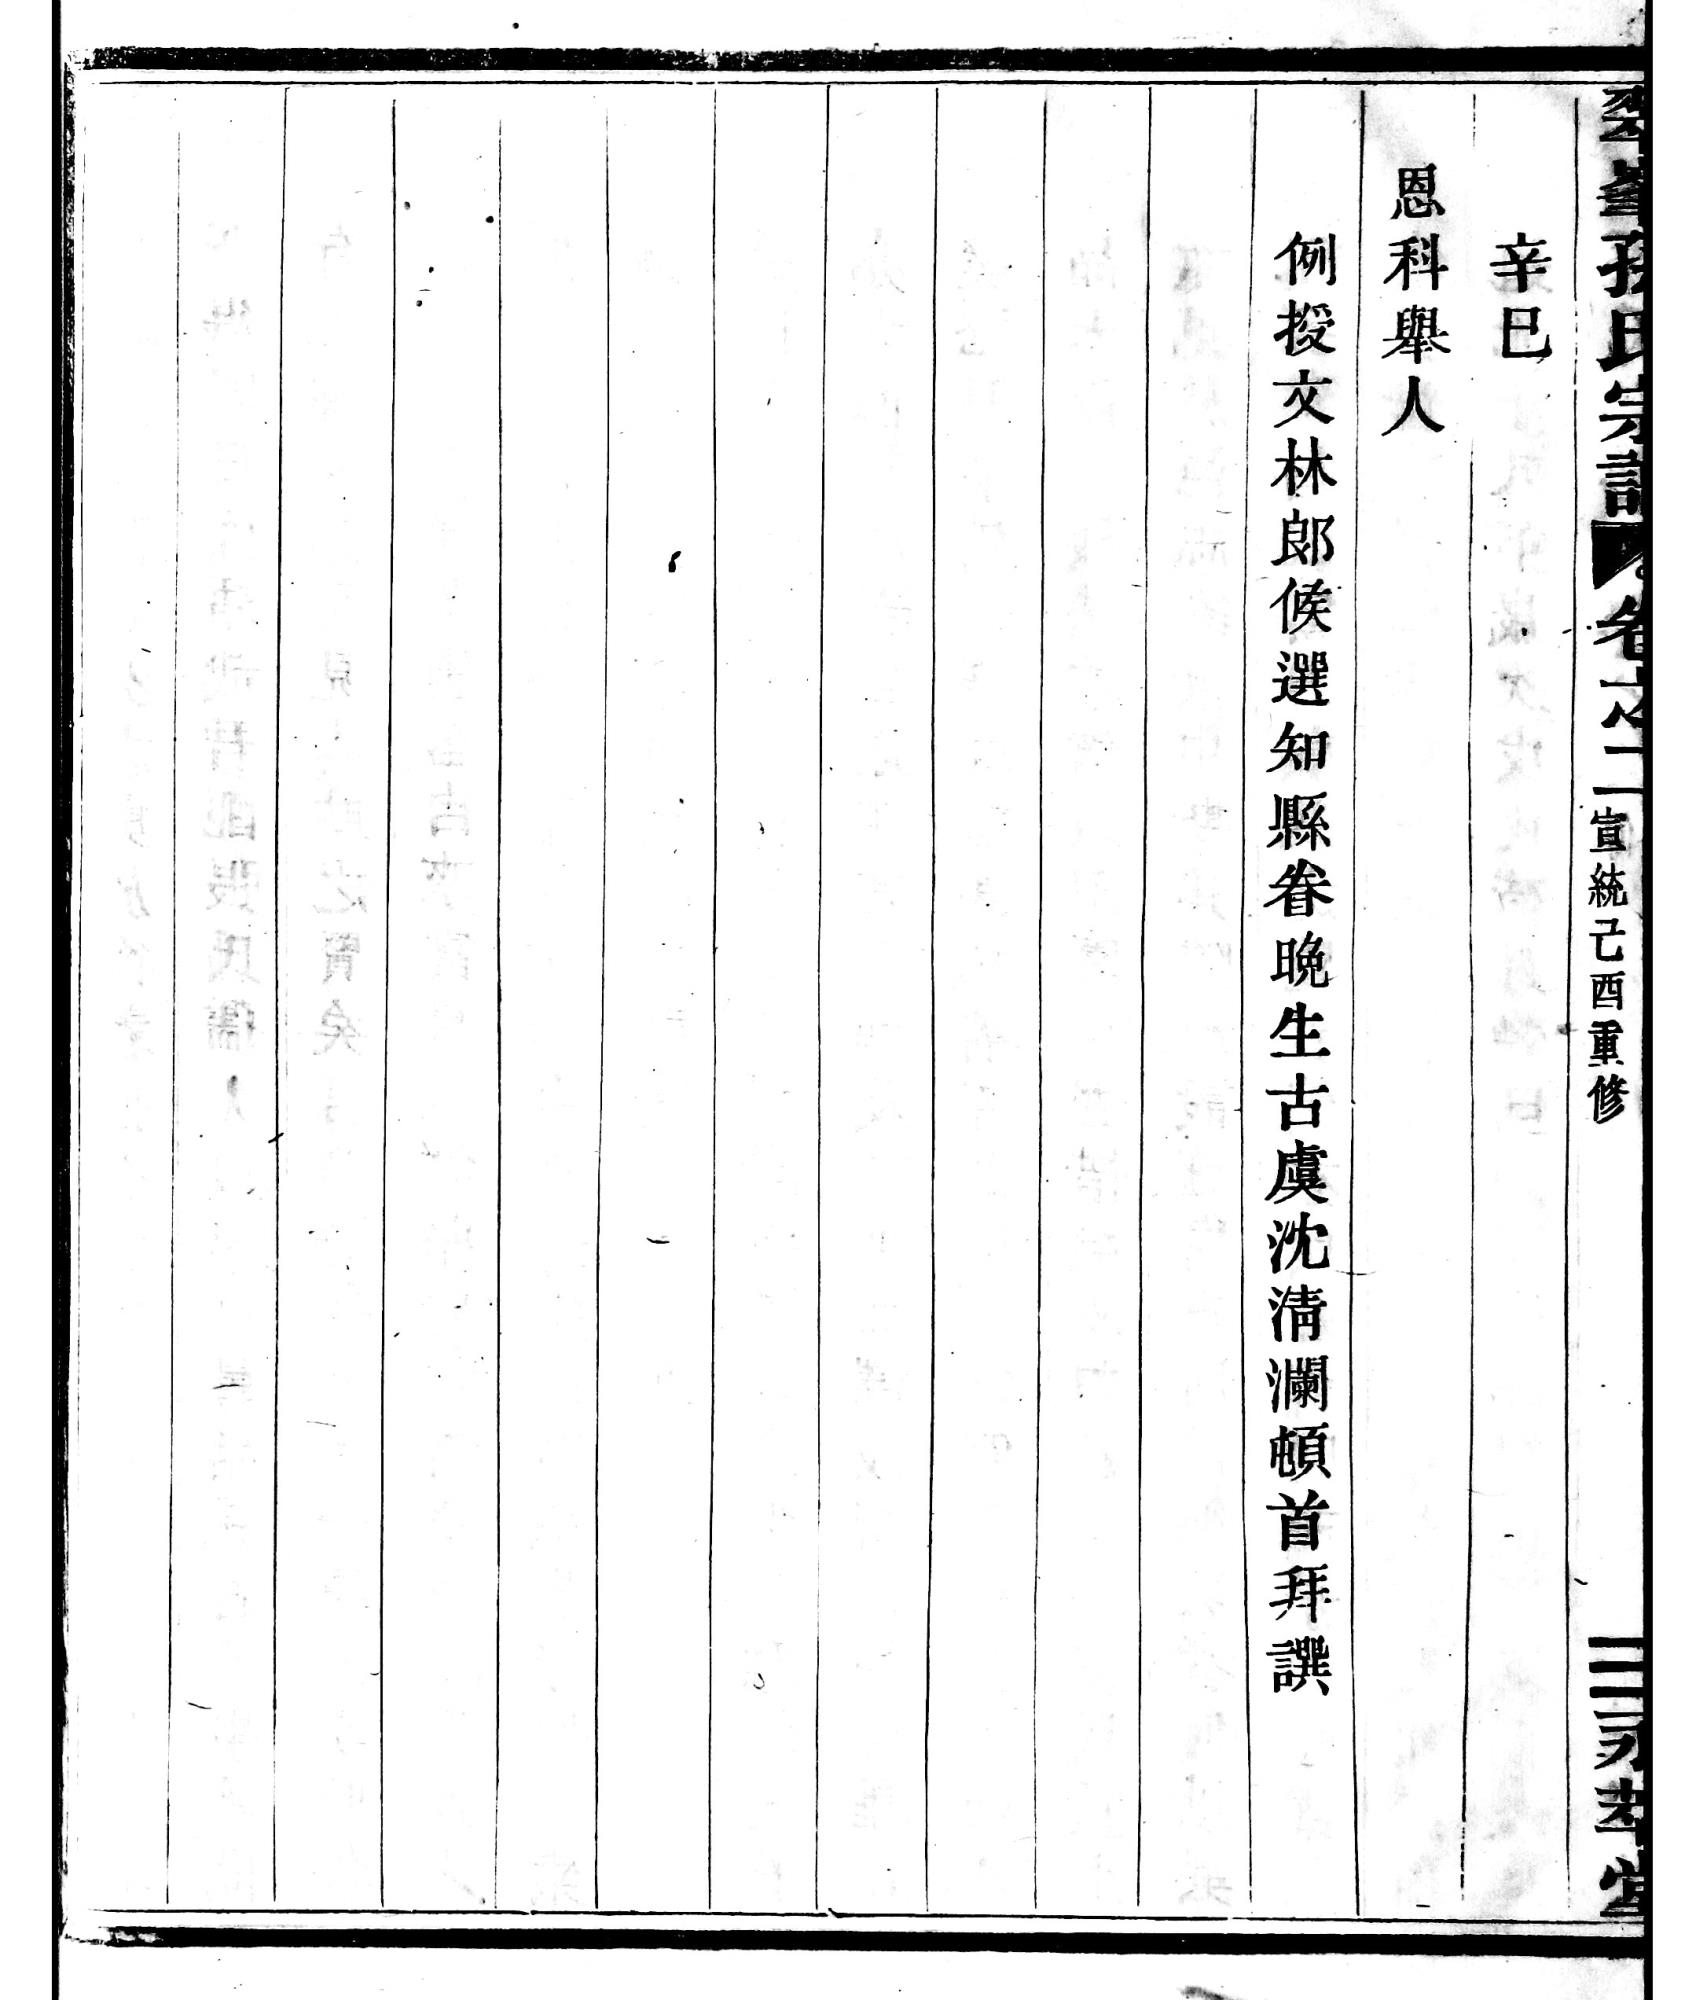 翠峯孫氏宗譜 卷之二 宣統己酉重修 二 永萃堂
辛巳
恩科舉人
例授文林郎候選知縣眷晚生古虞沈清瀾頓首拜譔